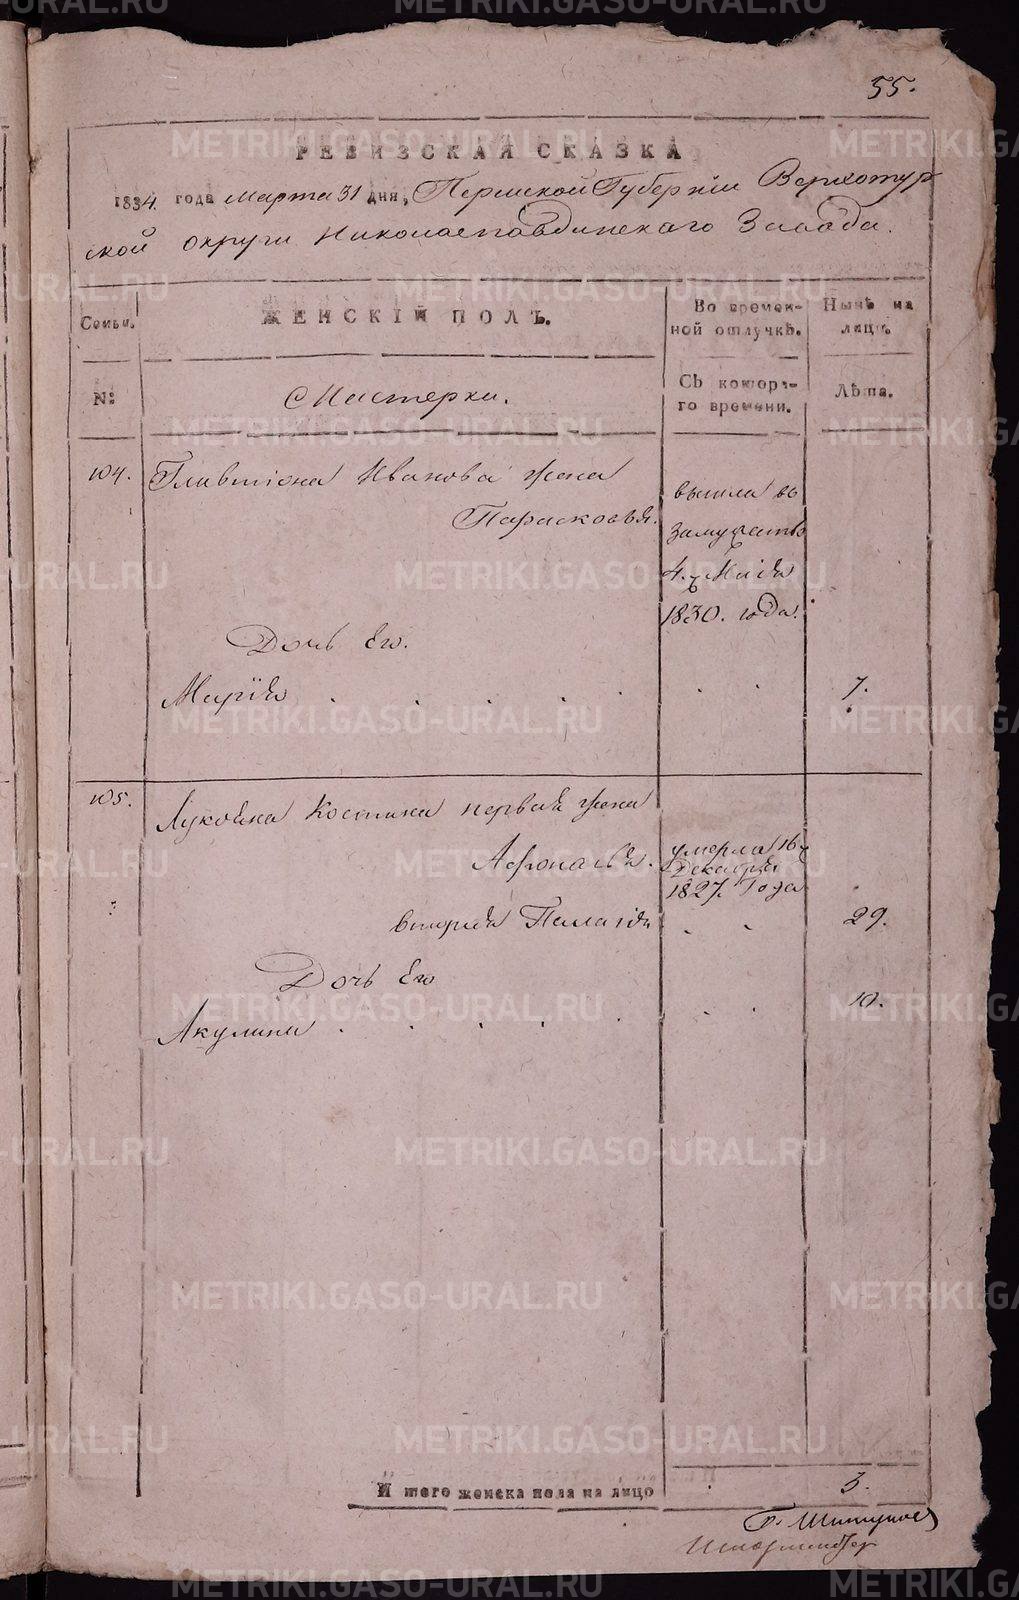 55.
РЕВИЗСКАЯ СКАЗКА
1834. года Марта 31 дня, Пермской Губернiи Верхотур
ской округи Николаепавдинскаго Завода.
Семьи. ЖЕНСКIЙ ПОЛЪ. Во времен- Нынѣ на
ной отлучкѣ. лицо.
№: Мастерки. Съ котора- Лѣта.
го времени.
104. Иванова жена
Парасковья. вышла въ
замужство
4. Маiя
1830. года.
Дочь Его.
Марiя 7.
105. Костина первая жена
умерла 16
Декабря
1827. Года
вторая Пелагiя 29.
Дочь Его
Акулина 10.
И того женска пола на лицо 3.
METRIKI.GASO-URAL.RU